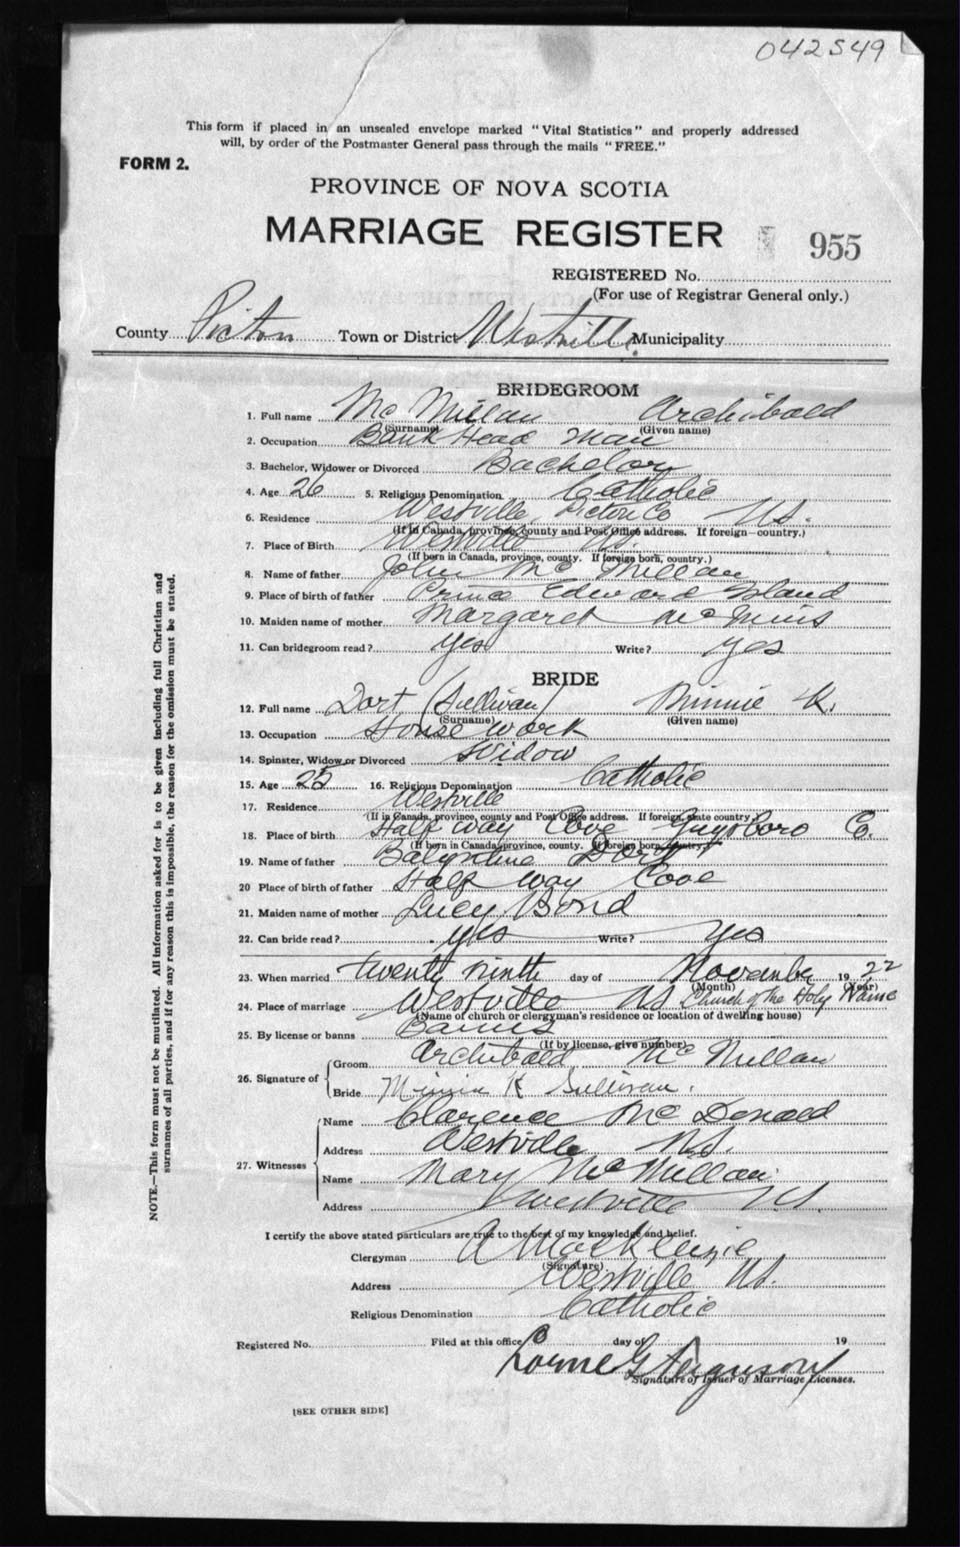 042549
This form if placed in an unsealed envelope marked "Vital Statistics" and properly addressed
will, by order of the Postmaster General pass through the mails "FREE."
FORM 2.
PROVINCE OF NOVA SCOTIA
MARRIAGE REGISTER 955
REGISTERED No.
(For use of Registrar General only.)
County Pictou Town or District Westville Municipality
BRIDEGROOM
1. Full name McMillan Archibald
(Surname) (Given name)
2. Occupation Bank Head Man
3. Bachelor, Widower or Divorced Bachelor
4. Age 26 5. Religious Denomination Catholic
6. Residence Westville Pictou Co N.S.
(If in Canada, province, county and Post Office address. If foreign—country.)
7. Place of Birth Westville
(If born in Canada, province, county. If foreign born, country.)
8. Name of father John McMillan
9. Place of birth of father Prince Edward Island
10. Maiden name of mother Margaret
11. Can bridegroom read? yes Write? yes
BRIDE
12. Full name Dort (Sullivan) Minnie K.
(Surname) (Given name)
13. Occupation House work
14. Spinster, Widow or Divorced Widow
15. Age 25 16. Religious Denomination Catholic
17. Residence Westville
(If in Canada, province, county and Post Office address. If foreign, state country.)
18. Place of birth Half Way Cove Guysboro Co.
(If born in Canada, province, county. If foreign born, country.)
19. Name of father Dort
20 Place of birth of father Half Way Cove
21. Maiden name of mother Lucy Bond
22. Can bride read? yes Write? yes
23. When married twenty ninth day of November 1922
(Month) (Year)
24. Place of marriage Westville NS Church of the Holy Name
(Name of church or clergyman's residence or location of dwelling house)
25. By license or banns Banns
(If by license, give number)
26. Signature of
Groom Archibald McMillan
Bride Minnie K Sullivan.
27. Witnesses
Name Clarence McDonald
Address Westville N.S.
Name Mary McMillan
Address Westville N.S.
I certify the above stated particulars are true to the best of my knowledge and belief.
Clergyman A MacKenzie
(Signature)
Address Westville N.S.
Religious Denomination Catholic
Registered No. Filed at this office day of 19
Lorne G Ferguson
Signature of Issuer of Marriage Licenses.
[SEE OTHER SIDE]
NOTE.—This form must not be mutilated. All information asked for is to be given including full Christian and
surnames of all parties, and if for any reason this is impossible, the reason for the omission must be stated.